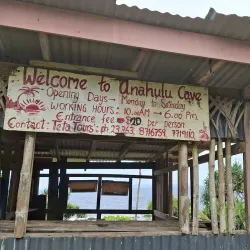 Welcome to Anahulu Cave
Opening Days → Monday to Saturday
WORKING HOURS: 10.00AM → 6.00 P.m.
Entrance fee → $20 per person
Contact: Teta Tours: ph 23763, 8716754, 7719110